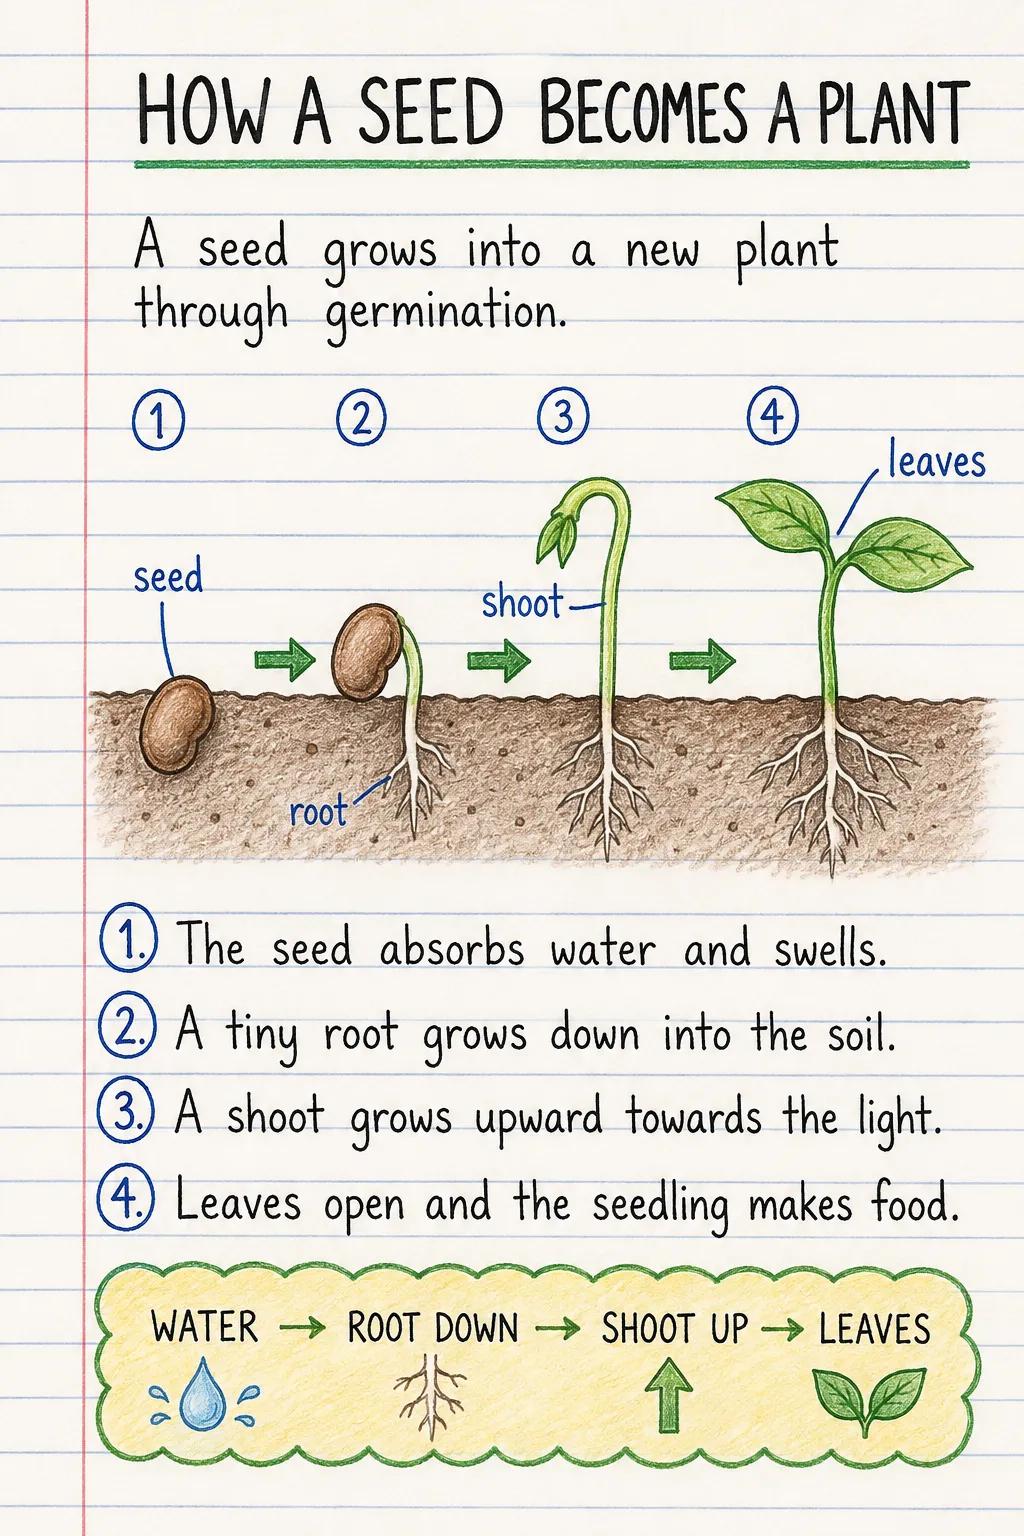 HOW A SEED BECOMES A PLANT
A seed grows into a new plant
through germination.
1 2 3 4
leaves
seed
shoot
root
1. The seed absorbs water and swells.
2. A tiny root grows down into the soil.
3. A shoot grows upward towards the light.
4. Leaves open and the seedling makes food.
WATER → ROOT DOWN → SHOOT UP → LEAVES